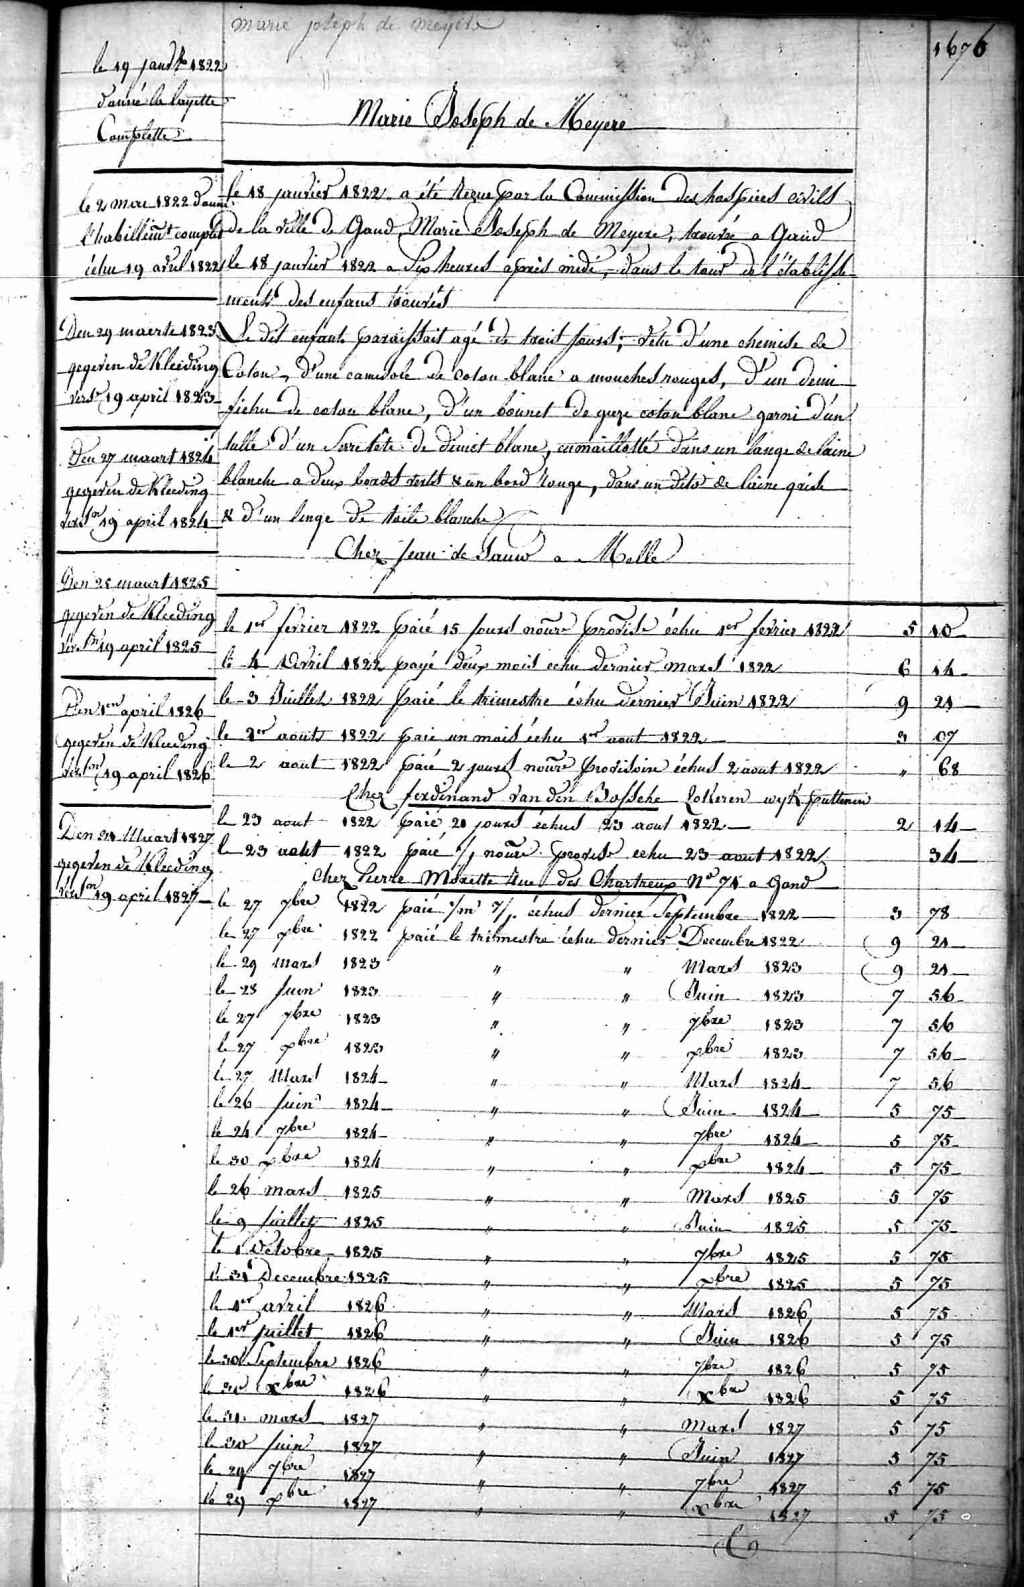 Marie Joseph de Meyere
1676
le 19 janv.r 1822
donné la layette
Complette
Marie Joseph de Meyere
le 2 mai 1822 donné
l'habillem.t complet
échu 19 avril 1822
Den 29 maerte 1823
gegeven de Kleeding
vers.n 19 april 1823
Den 27 maart 1824
gegeven de Kleeding
vers.n 19 april 1824
Den 28 maart 1825
gegeven de Kleeding
vers.n 19 april 1825
Den 1en april 1826
gegeven de Kleeding
vers.n 19 april 1826
Den 31 Maart 1827
gegeven de Kleeding
vers.n 19 april 1827
le 18 janvier 1822 a été reçue par la Commission des hospices civils
de la ville de Gand Marie Joseph de Meyere, trouvée a Gand
le 18 janvier 1822 a Six heures après midi, dans le tour de l'établisse
ment des enfans trouvés
Le dit enfant paraissait agé de trois jours, vétu d'une chemise de
Coton, d'une camisole de coton blanc a mouches rouges, d'un demi
fichu de coton blanc, d'un bonnet de gaze coton blanc garni d'un
tulle d'un Serretête de dimet blanc, emmaillotté dans un lange de laine
blanche a deux bords verts & un bord rouge, dans un dito de laine grise
& d'un linge de toile blanche
Chez Jean de Sauw a Melle
le 1er fevrier 1822 paié 15 jours nourre provise échu 1er fevrier 1822 5 10
le 4 Avril 1822 payé deux mois echu dernier mars 1822 6 14
le 3 Juillet 1822 paié le trimestre échu dernier Juin 1822 9 21
le 2er aout 1822 paié un mois échu 1er aout 1822 3 07
le 2 aout 1822 paié 2 jours nourre provisoire échus 2 aout 1822 " 68
Chez ferdinand van den Bossche Lokeren wyk puttenen
le 23 aout 1822 paié 21 jours échus 23 aout 1822 2 14
le 23 aout 1822 paié 1/j nourre provise echu 23 aout 1822 34
Chez Pierre Morette Rue des Chartreux No 71 a Gand
le 27 7bre 1822 paié 1/m 7/j. échus dernier Septembre 1822 3 78
le 27 xbre 1822 paié le trimestre échu dernier Decembre 1822 9 21
le 29 mars 1823 " " Mars 1823 9 21
le 28 Juin 1823 " " Juin 1823 7 56
le 27 7bre 1823 " " 7bre 1823 7 56
le 27 xbre 1823 " " xbre 1823 7 56
le 27 Mars 1824 " " Mars 1824 7 56
le 26 Juin 1824 " " Juin 1824 5 75
le 24 7bre 1824 " " 7bre 1824 5 75
le 30 xbre 1824 " " xbre 1824 5 75
le 26 mars 1825 " " Mars 1825 5 75
le 9 Juillet 1825 " " Juin 1825 5 75
le 1 Octobre 1825 " " 7bre 1825 5 75
le 31 Decembre 1825 " " xbre 1825 5 75
le 1er avril 1826 " " Mars 1826 5 75
le 1er juillet 1826 " " Juin 1826 5 75
le 30 Septembre 1826 " " 7bre 1826 5 75
le 30 xbre 1826 " " xbre 1826 5 75
le 31 mars 1827 " " Mars 1827 5 75
le 30 Juin 1827 " " Juin 1827 5 75
le 29 7bre 1827 " " 7bre 1827 5 75
le 29 xbre 1827 " " xbre 1827 5 75